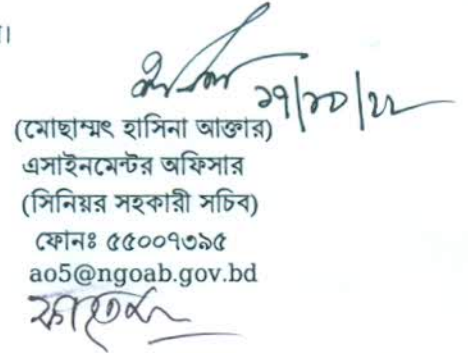 ১৭/১০/২২
(মোছাম্মৎ হাসিনা আক্তার)
এসাইনমেন্টর অফিসার
(সিনিয়র সহকারী সচিব)
ফোনঃ ৫৫০০৭৩৯৫
ao5@ngoab.gov.bd